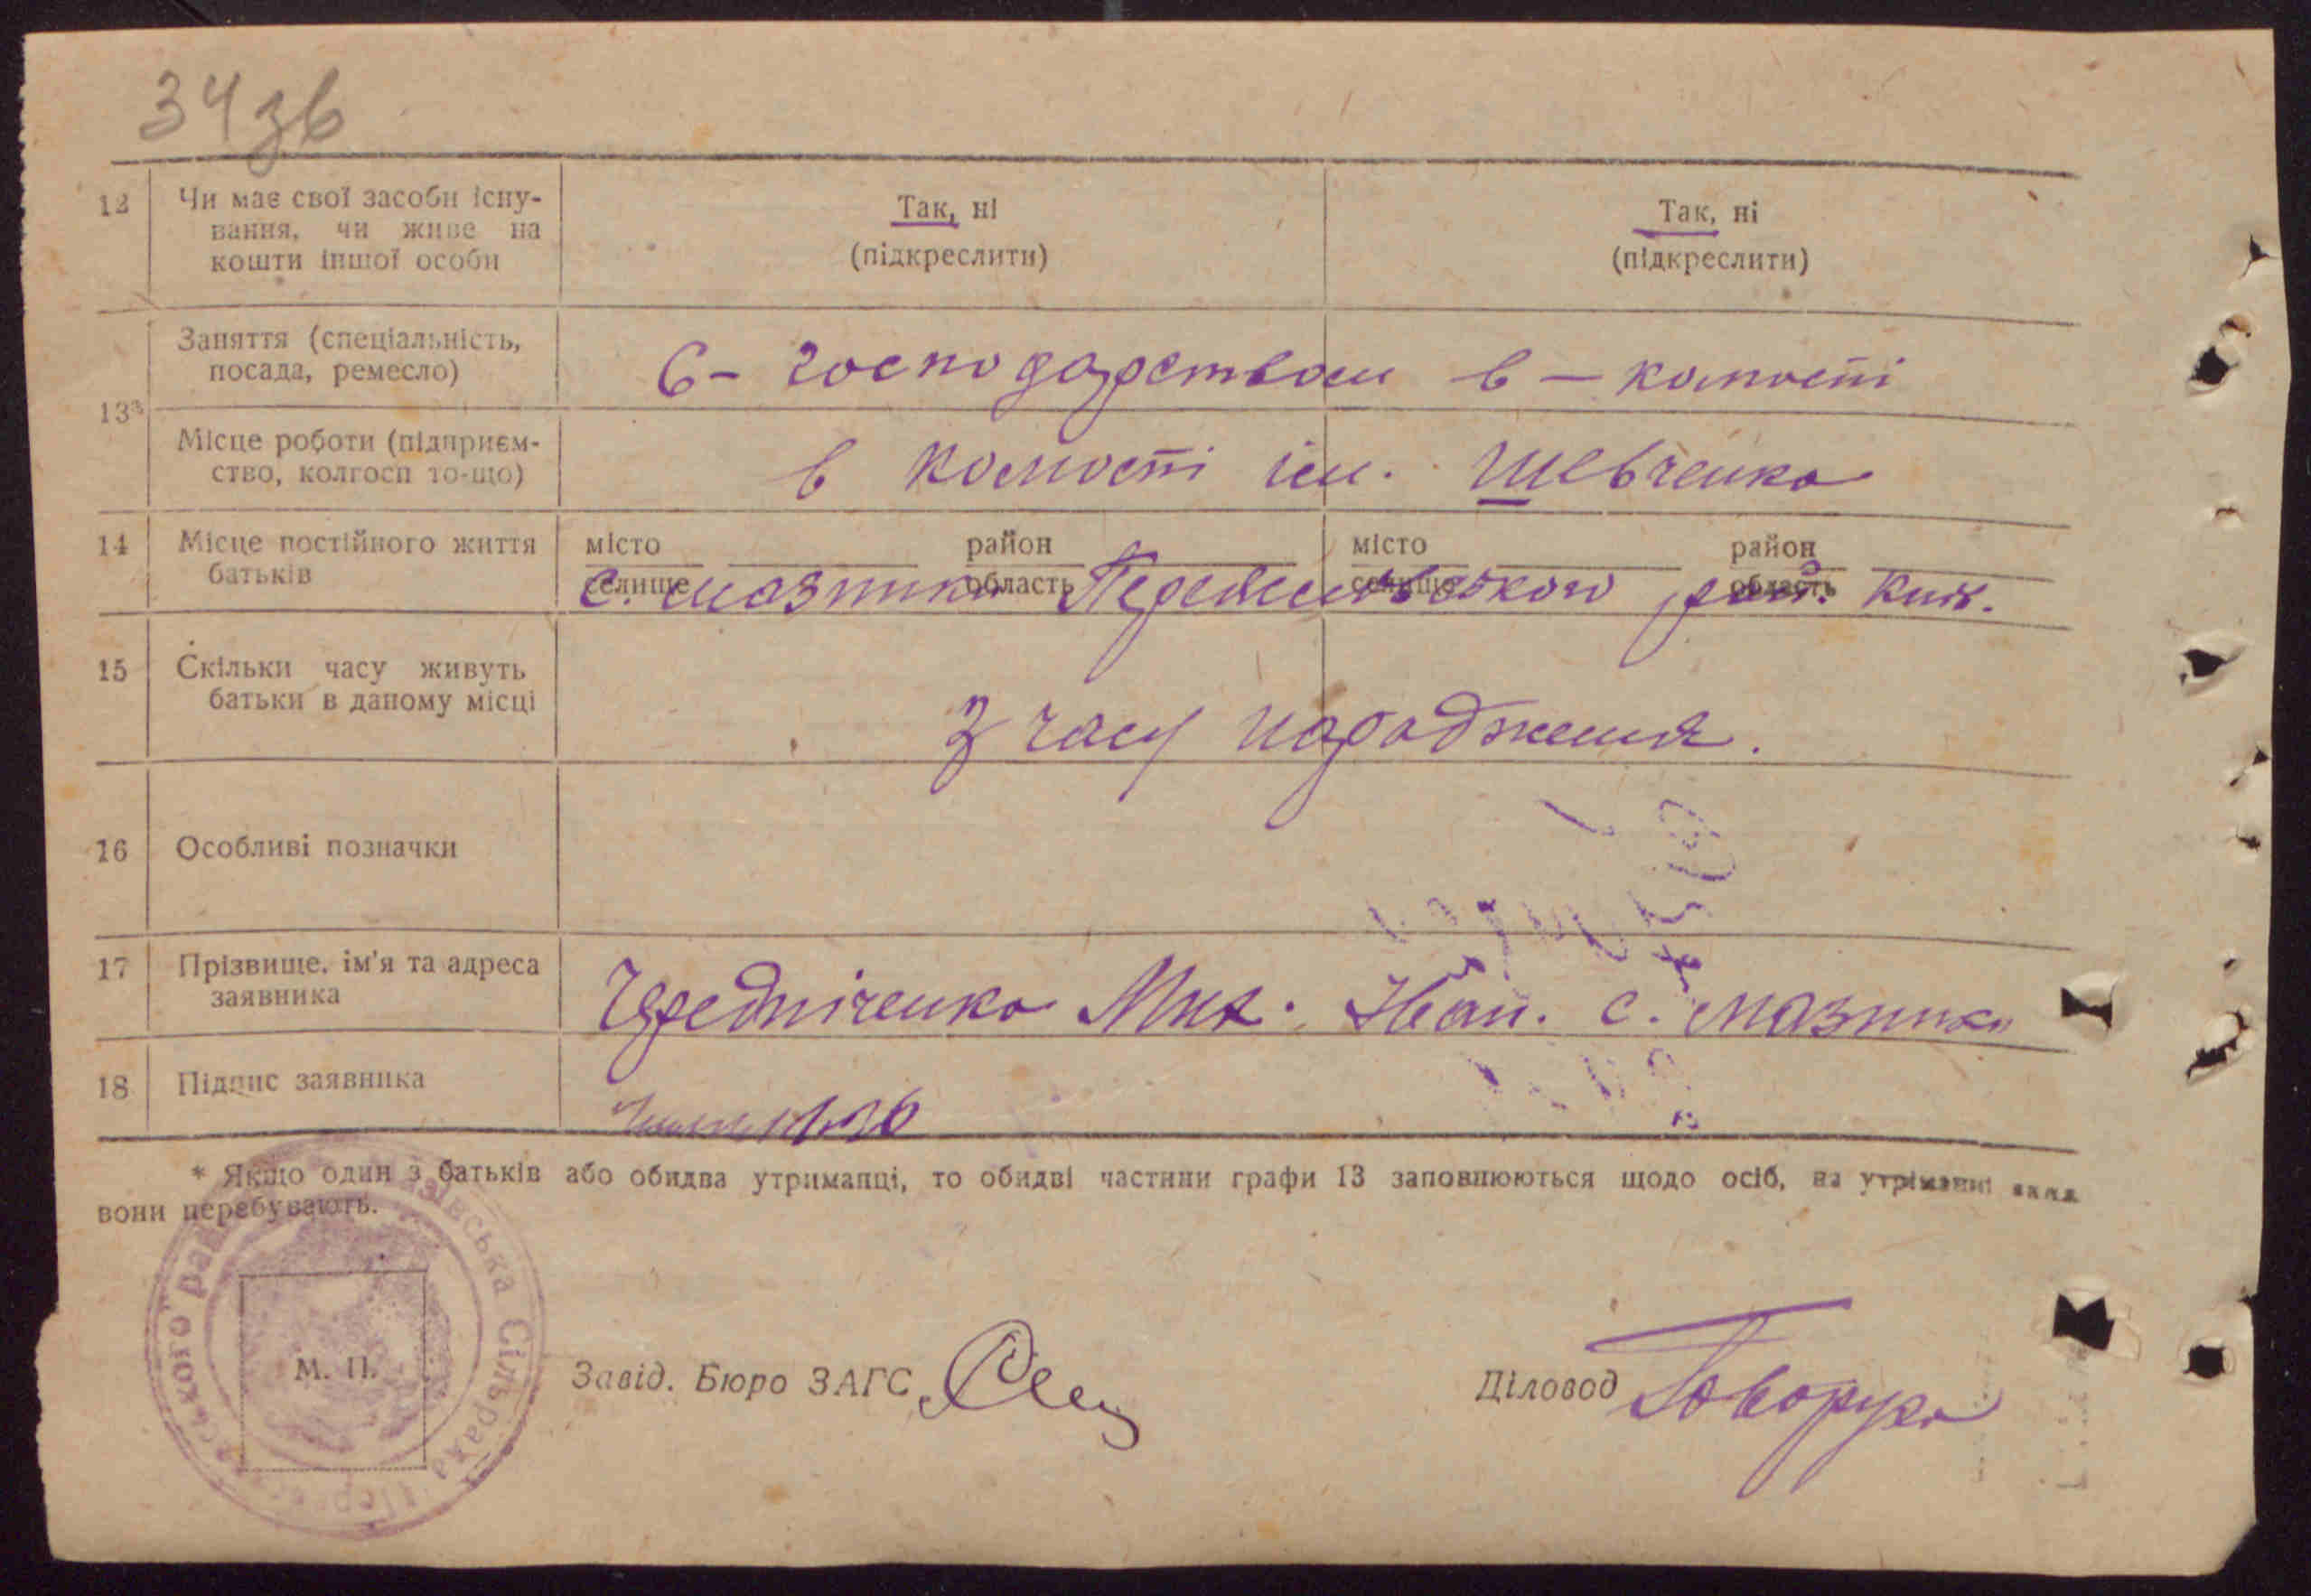 34 зв
12 Чи має свої засоби існу-
вання, чи живе на
кошти іншої особи
Так, ні
(підкреслити)
Так, ні
(підкреслити)
13*
Заняття (спеціальність,
посада, ремесло)
С – господарством в – комості
Місце роботи (підприєм-
ство, колгосп то-що)
в комості ім. Шевченка
14 Місце постійного життя
батьків
місто район місто район
селище область селище область
с. Мазінки рай. Київ.
15 Скільки часу живуть
батьки в даному місці
З часу народження.
16 Особливі позначки
17 Прізвище, ім'я та адреса
заявника
Чередніченко Мих. Іван. с. Мазінки
18 Підпис заявника
* Якщо один з батьків або обидва утриманці, то обидві частини графи 13 заповнюються щодо осіб, на утріманні яких
вони перебувають.
М. П.
Завід. Бюро ЗАГС
Діловод Говоруха
Сільрада